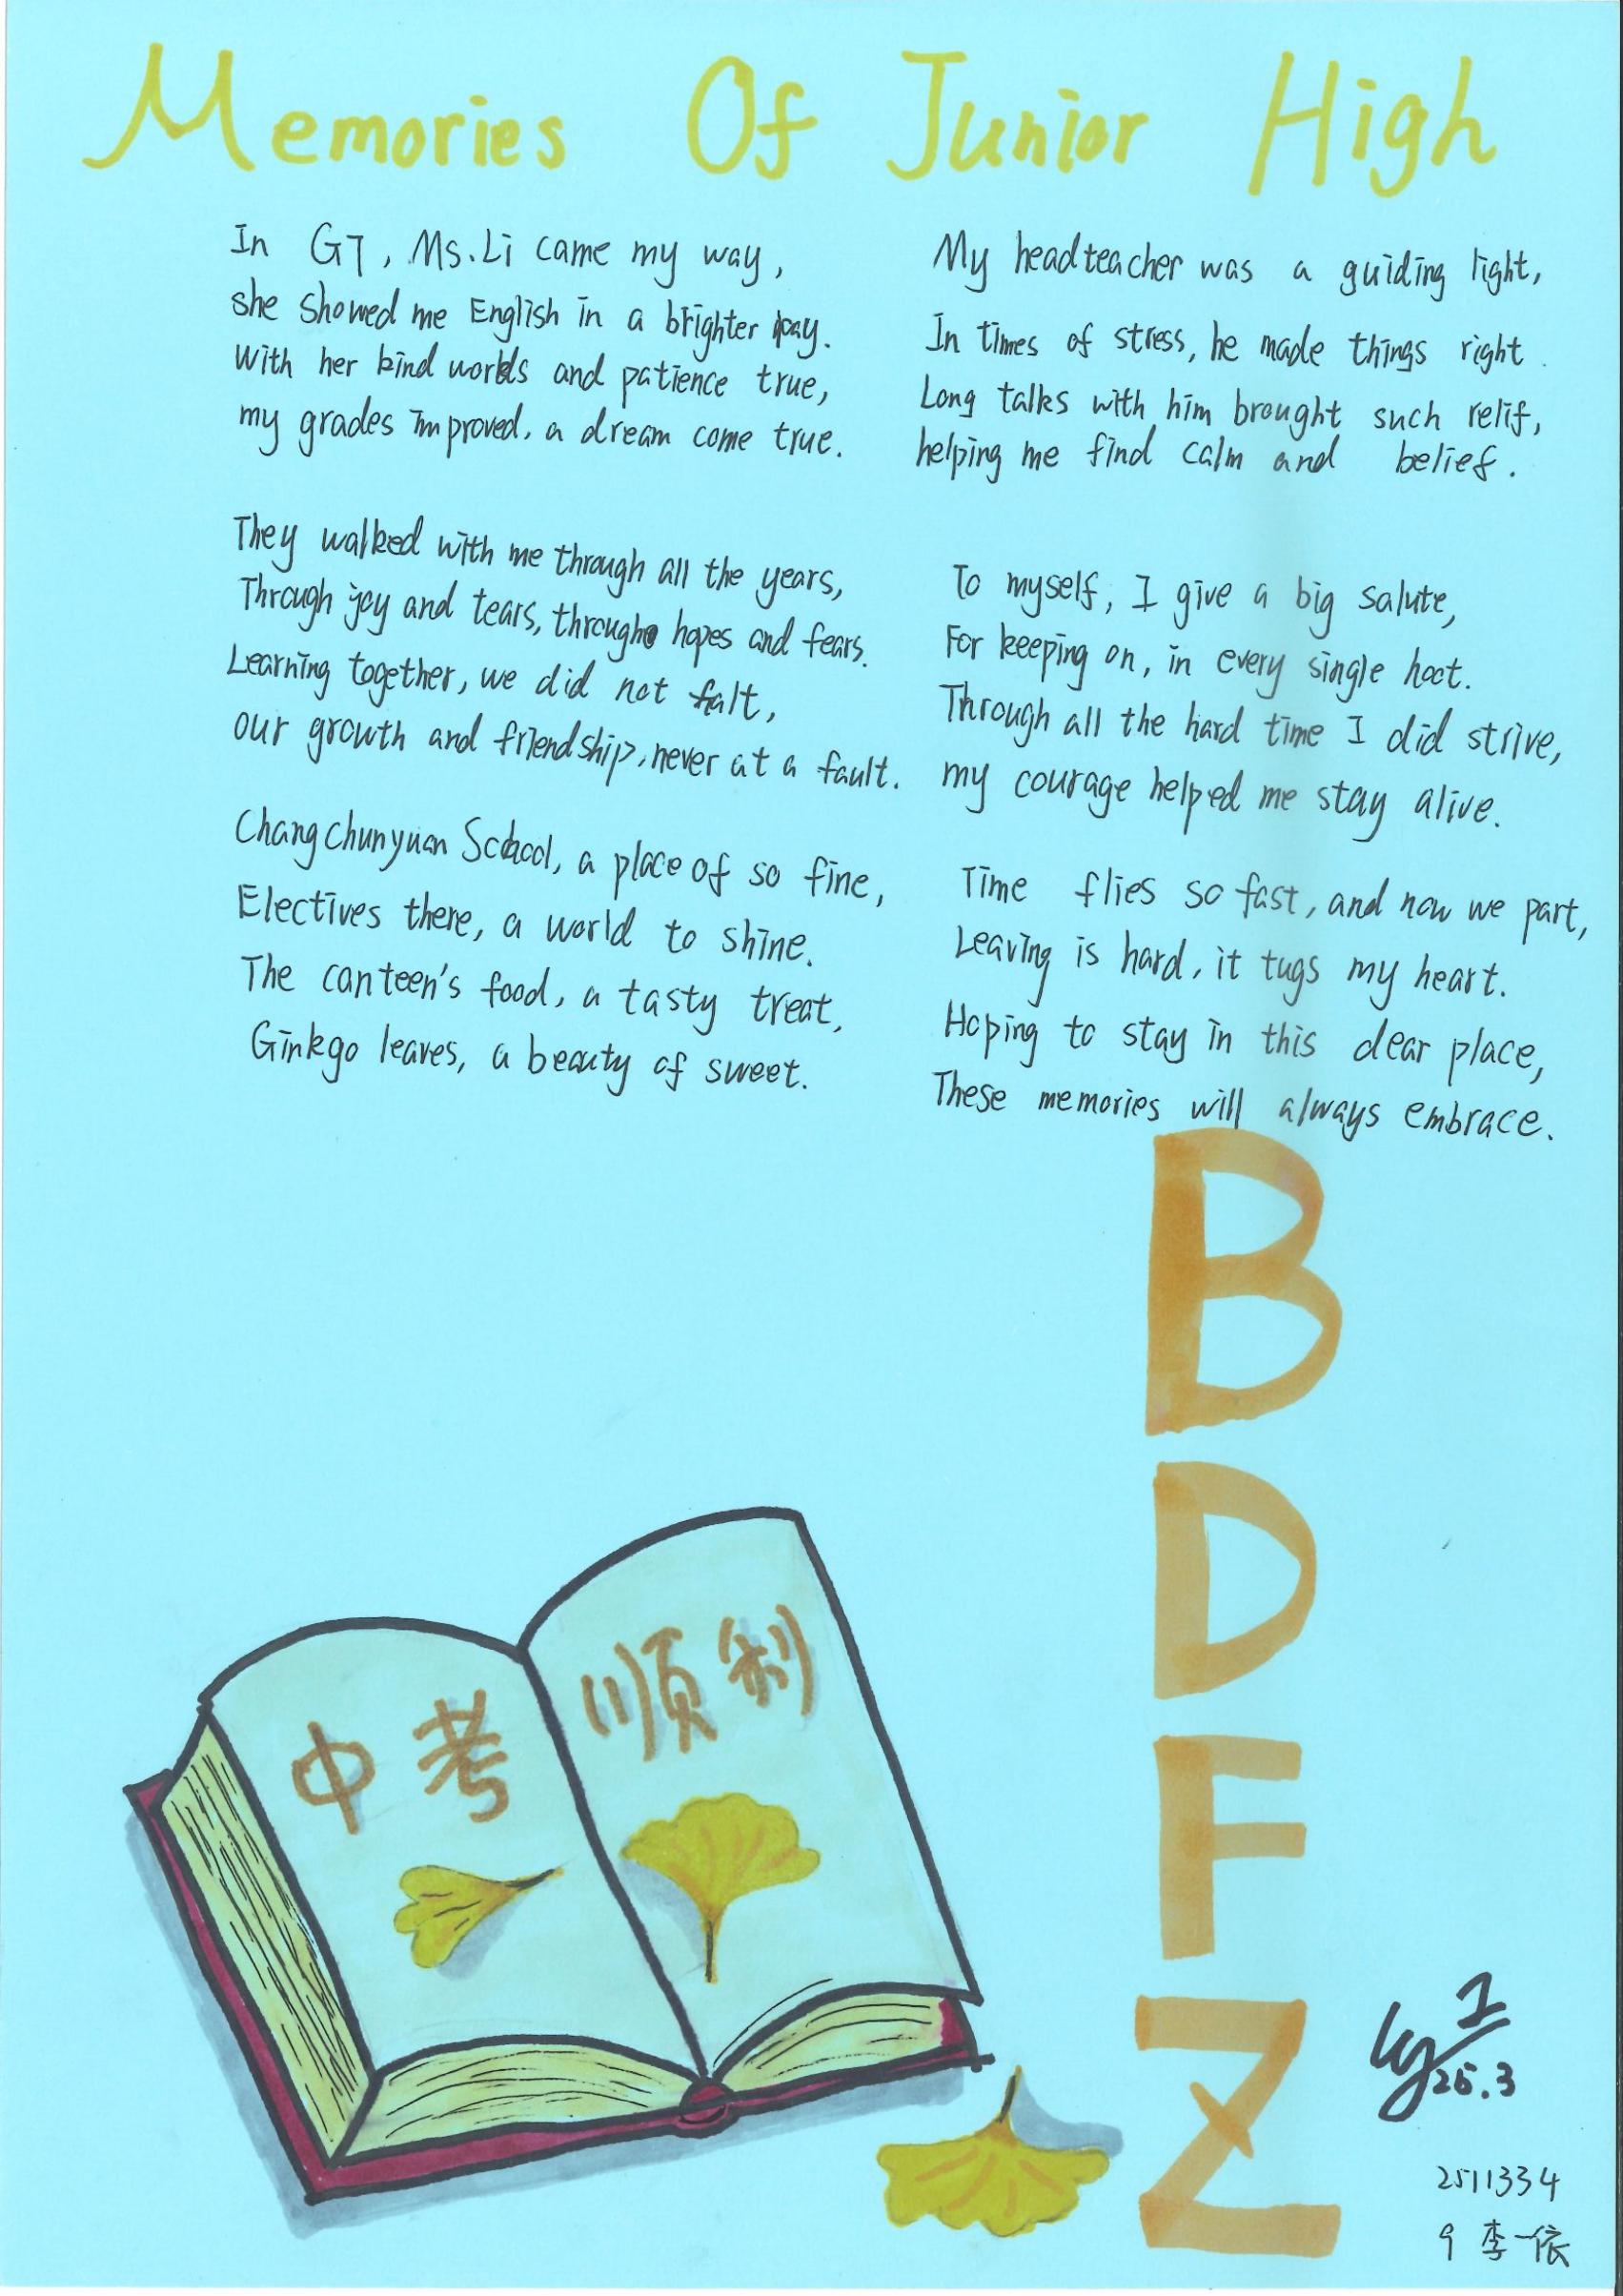 Memories Of Junior High
In G7, Ms.Li came my way,
she showed me English in a brighter way.
With her kind words and patience true,
my grades improved, a dream come true.
They walked with me through all the years,
Through joy and tears, through hopes and fears.
Learning together, we did not falt,
our growth and friendship, never at a fault.
Changchunyuan School, a place of so fine,
Electives there, a world to shine.
The canteen's food, a tasty treat,
Ginkgo leaves, a beauty of sweet.
My headteacher was a guiding light,
In times of stress, he made things right.
Long talks with him brought such relif,
helping me find calm and belief.
To myself, I give a big salute,
For keeping on, in every single hoot.
Through all the hard time I did strive,
my courage helped me stay alive.
Time flies so fast, and now we part,
Leaving is hard, it tugs my heart.
Hoping to stay in this dear place,
These memories will always embrace.
B
D
F
Z
中考
顺利
25.3
2511334
9 李一依